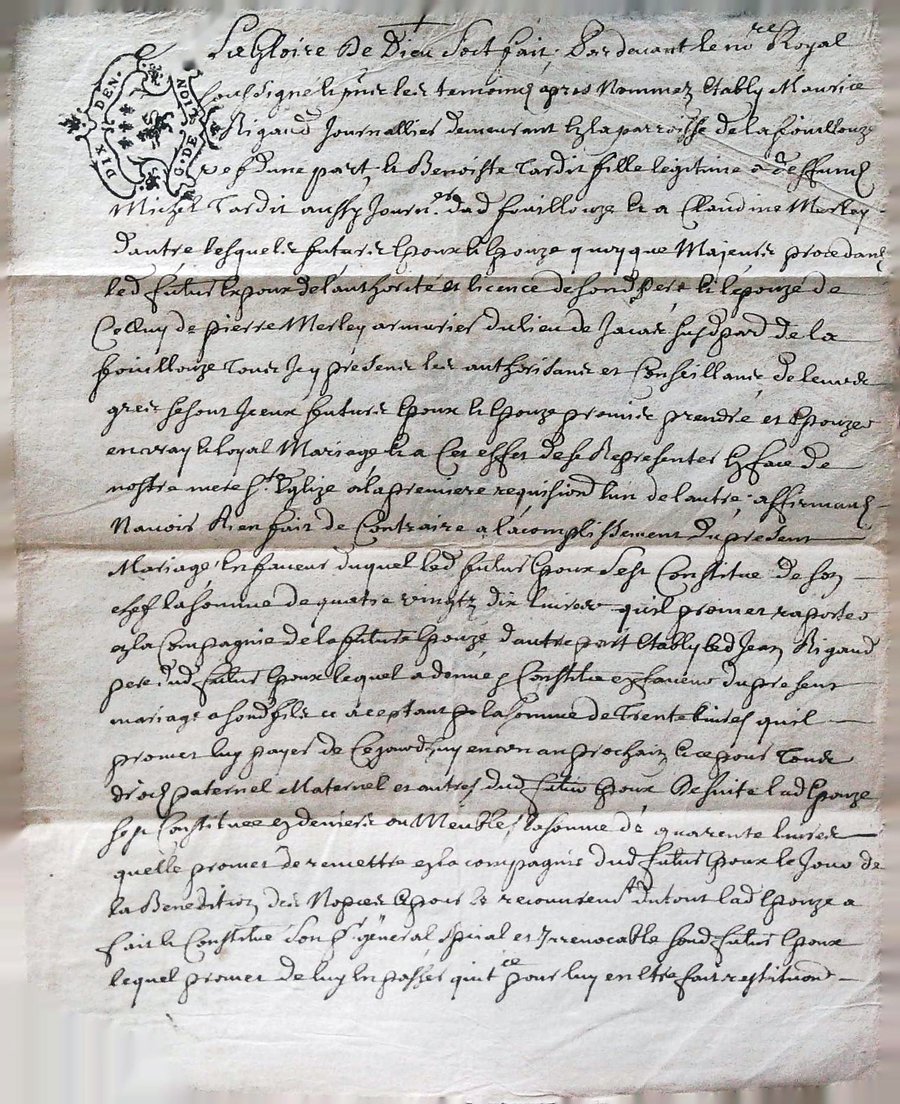 DIX DEN.
G. DE LION
La Gloire De Dieu soit fait; Pardevant le no.re Royal
soussigné & pnts les temoins apres Nommez Estably Maurice
Rigaud Journallier demeurant en la parroisse de la fouillouze
d'une part, & Benoiste Tardif fille legitime a deffunct
Michel Tardif aussy Journ.er dud fouillouze & a Claudine Merley
d'autre lesquels futurs Epoux & Epouze quoyque Majeurs procedants
led futur Epoux de l'authorité et licence de sond Pere & l'epouze de
Celluy de pierre Merley armurier du lieu de
fouillouze Tous Icy présens les authorisans et Conseillans, de leurs
gres se sont Iceux futurs Epoux & Epouze promis prendre et Epouzer
en vray & loyal Mariage & a Cet effet de se Representer En face de
nostre mere S.te Eglize a la premiere requision l'un de l'autre; affirmants
N'avoir Rien fait de Contraire a lacomplissement du present
Mariage, En faveur duquel led futur Epoux s'est Constitué de son
chef la somme de quatre vingtz dix livres qu'il promet raporter
en la Compagnie de la future Epouze, d'autre part Estably led Jean Rigaud
pere dud futur Epoux lequel a donné & Constitué en faveur du present
mariage a sond fils ce aceptant la somme de Trente livres qu'il
promet luy payer de Cejourdhuy en un an prochain & ce pour Tous
droits paternel Maternel et autres dud futur Epoux De suite lad Epouze
s'est Constituee en deniers ou Meubles la somme de quarente livres
quelle promet de remettre en la compagnie dud futur Epoux le Jour de
la Benediction des Nopces Epour le recouvrem.t du tout lad Epouze a
fait & Constitué son p.r general spécial et Irrevocable sond futur Epoux
lequel promet de luy En passer quit.ce pour luy en Estre fait restitution